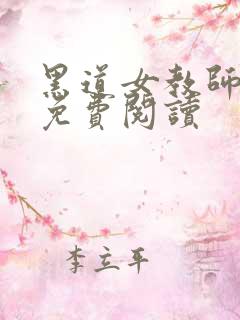 黑道女教師
免費閱讀
李立平